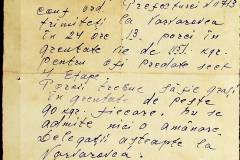 Conf ord. Prefecturei No 4713
trimiteți la Varvareuca
în 24 ore 13. porci în
greutate de
pentru a fi predate
4 Etape.
Porcii trebue să fie grași
în greutate de peste
90 kgr. fiecare. Nu se
admite nici o amânare.
Delegații așteapta la
Varvareuca.